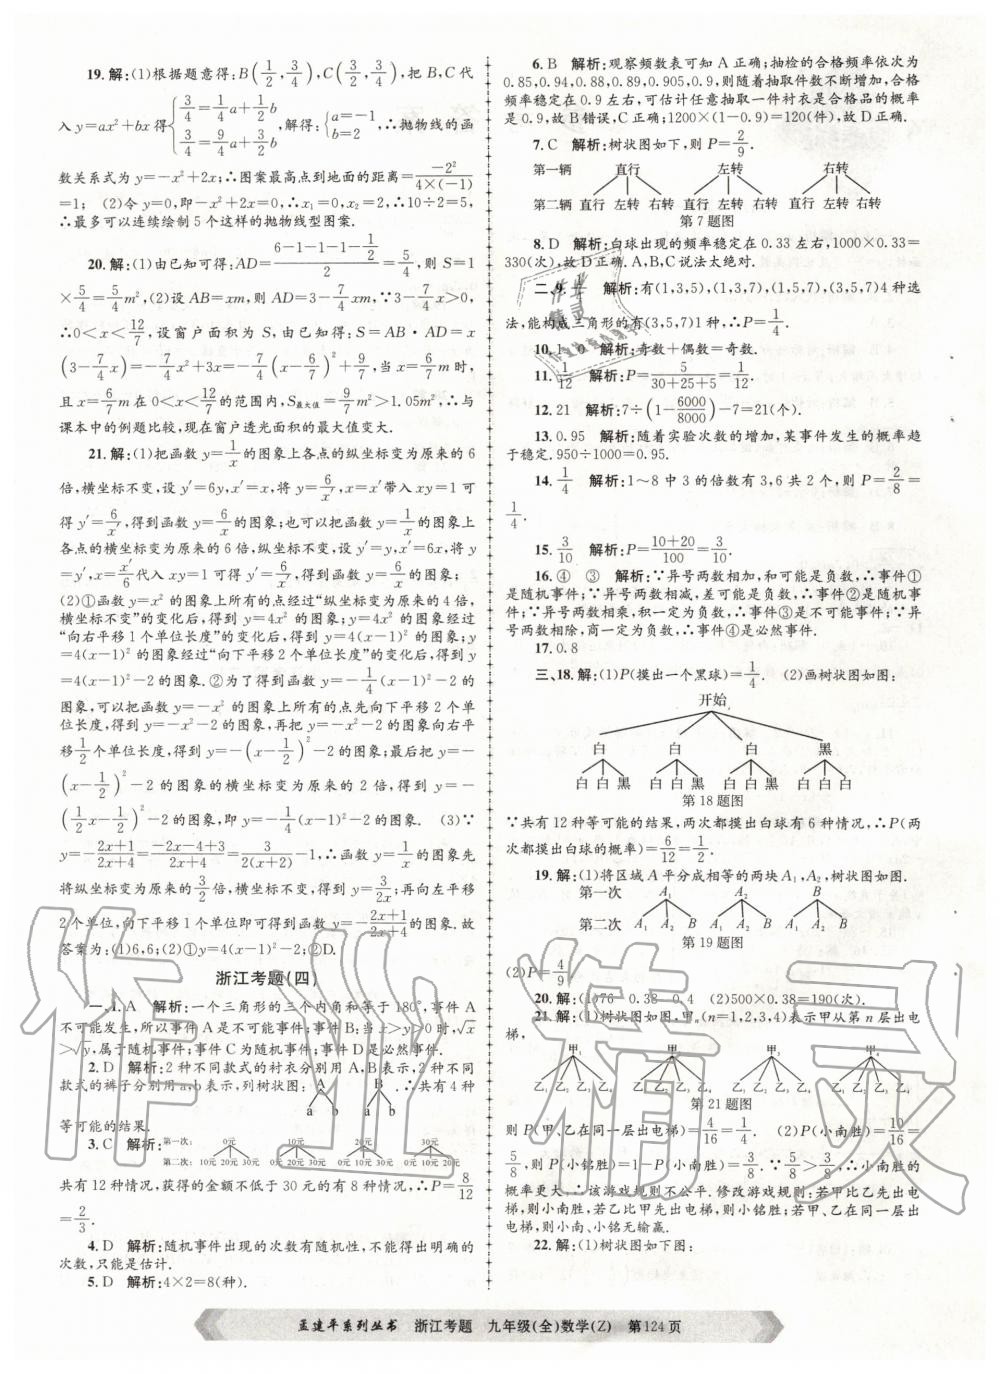 19.解:(1)根据题意得:B(1/2,3/4),C(3/2,3/4),把B,C代
入y=ax²+bx得{3/4=1/4a+1/2b, 3/4=9/4a+3/2b,解得:{a=-1 b=2,∴抛物线的函
数关系式为y=-x²+2x;∴图案最高点到地面的距离=-2²/4×(-1)
=1; (2)令y=0,即-x²+2x=0,∴x₁=0,x₂=2,∴10÷2=5,
∴最多可以连续绘制5个这样的抛物线型图案.
20.解:(1)由已知可得:AD=(6-1-1-1-1/2)/2=5/4,则S=1
×5/4=5/4m²,(2)设AB=xm,则AD=3-7/4xm,∵3-7/4x>0,
∴0<x<12/7,设窗户面积为S,由已知得:S=AB·AD=x
(3-7/4x)=-7/4x²+3x=-7/4(x-6/7)²+9/7,当x=6/7m时,
且x=6/7m在0<x<12/7的范围内,S最大值=9/7m²>1.05m²,∴与
课本中的例题比较,现在窗户透光面积的最大值变大.
21.解:(1)把函数y=1/x的图象上各点的纵坐标变为原来的6
倍,横坐标不变,设y′=6y,x′=x,将y=y′/6,x=x′带入xy=1可
得y′=6/x′,得到函数y=6/x的图象;也可以把函数y=1/x的图象上
各点的横坐标变为原来的6倍,纵坐标不变,设y′=y,x′=6x,将y
=y′,x=x′/6代入xy=1可得y′=6/x′,得到函数y=6/x的图象;
(2)①函数y=x²的图象上所有的点经过“纵坐标变为原来的4倍,
横坐标不变”的变化后,得到函数y=4x²的图象;函数y=4x²的图象经过
“向右平移1个单位长度”的变化后,得到函数y=4(x-1)²的图象;y
=4(x-1)²的图象经过“向下平移2个单位长度”的变化后,得到函数
y=4(x-1)²-2的图象.②为了得到函数y=-1/4(x-1)²-2的
图象,可以把函数y=-x²的图象上所有的点先向下平移2个单
位长度,得到y=-x²-2的图象,再把y=-x²-2的图象向右平
移1/2个单位长度,得到y=-(x-1/2)²-2的图象;最后把y=-
(x-1/2)²-2的图象的横坐标变为原来的2倍,得到y=-
(1/2x-1/2)²-2的图象,即y=-1/4(x-1)²-2的图象. (3)∵
y=-(2x+1)/(2x+4)=(-2x-4+3)/(2x+4)=3/(2(x+2))-1,∴函数y=1/x的图象先
将纵坐标变为原来的3/2倍,横坐标不变,得到y=3/2x;再向左平移
2个单位,向下平移1个单位即可得到函数y=-(2x+1)/(2x+4)的图象.故
答案为:(1)6,6;(2)①y=4(x-1)²-2;②D.
浙江考题(四)
一、1.A 解析:一个三角形的三个内角和等于180°,事件A
不可能发生,所以事件A是不可能事件;事件B:当x>y>0时,√x
>√y,属于随机事件;事件C为随机事件;事件D是必然事件.
2.D 解析:2种不同款式的衬衣分别用A,B表示,2种不同
款式的裤子分别用a,b表示,列树状图: A B .∴共有4种
a b a b
等可能的结果.
3.C 解析: 第一次: 0元 10元 20元 30元
第二次: 10元 20元 30元 0元 20元 30元 0元 10元 30元 0元 10元 20元
共有12种情况,获得的金额不低于30元的有8种情况,∴P=8/12
=2/3.
4.D 解析:随机事件出现的次数有随机性,不能得出明确的
次数,只能是估计.
5.D 解析:4×2=8(种).
6.B 解析:观察频数表可知A正确;抽检的合格频率依次为
0.85,0.94,0.88,0.89,0.905,0.9,则随着抽取件数不断增加,合格
频率稳定在0.9左右,可估计任意抽取一件衬衣是合格品的概率
是0.9,故B错误,C正确;1200×(1-0.9)=120(件),故D正确.
7.C 解析:树状图如下,则P=2/9.
第一辆 直行 左转 右转
第二辆 直行 左转 右转 直行 左转 右转 直行 左转 右转
第7题图
8.D 解析:白球出现的频率稳定在0.33左右,1000×0.33=
330(次),故D正确.A,B,C说法太绝对.
二、9.1/4 解析:有(1,3,5),(1,3,7),(1,5,7),(3,5,7)4种选
法,能构成三角形的有(3,5,7)1种,∴P=1/4.
10.1 0 解析:奇数+偶数=奇数.
11.1/12 解析:P=5/(30+25+5)=1/12.
12.21 解析:7÷(1-6000/8000)-7=21(个).
13.0.95 解析:随着实验次数的增加,某事件发生的概率趋
于稳定.950÷1000=0.95.
14.1/4 解析:1~8中3的倍数有3,6共2个,则P=2/8=
1/4.
15.3/10 解析:P=(10+20)/100=3/10.
16.④ ③ 解析:∵异号两数相加,和可能是负数,∴事件①
是随机事件;∵异号两数相减,差可能是负数,∴事件②是随机事
件;∵异号两数相乘,积一定为负数,∴事件③是不可能事件;∵异
号两数相除,商一定为负数,∴事件④是必然事件.
17.0.8
三、18.解:(1)P(摸出一个黑球)=1/4. (2)画树状图如图:
开始
白 白 白 黑
白 白 黑 白 白 黑 白 白 黑 白 白 白
第18题图
∵共有12种等可能的结果,两次都摸出白球有6种情况,∴P(两
次都摸出白球的概率)=6/12=1/2.
19.解:(1)将区域A平分成相等的两块A₁,A₂,树状图如图.
第一次 A₁ A₂ B
第二次 A₁ A₂ B A₁ A₂ B A₁ A₂ B
第19题图
(2)P=4/9.
20.解:(1)76 0.38 0.4 (2)500×0.38=190(次).
21.解:(1)树状图如图,甲ₙ(n=1,2,3,4)表示甲从第n层出电
梯,
甲₁ 甲₂ 甲₃ 甲₄
乙₁ 乙₂ 乙₃ 乙₄ 乙₁ 乙₂ 乙₃ 乙₄ 乙₁ 乙₂ 乙₃ 乙₄ 乙₁ 乙₂ 乙₃ 乙₄
第21题图
则P(甲、乙在同一层出电梯)=4/16=1/4. (2)P(小南胜)=10/16=
5/8,则P(小铭胜)=1-P(小南胜)=3/8.∵5/8>3/8,∴小南胜的
概率更大,∴该游戏规则不公平.修改游戏规则:若甲比乙先出电
梯,则小南胜,若乙比甲先出电梯,则小铭胜;若甲、乙在同一层出
电梯,则小南、小铭无输赢.
22.解:(1)树状图如下图:
孟建平系列丛书 浙江考题 九年级(全)数学(Z) 第124页
作业精灵